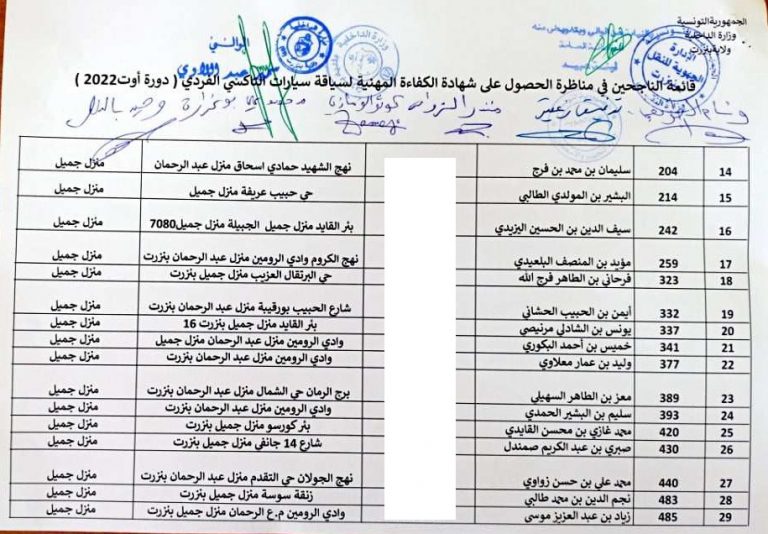 الجمهورية التونسية
وزارة الداخلية
ولاية بنزرت
الوالي
قائمة الناجحين في مناظرة الحصول على شهادة الكفاءة المهنية لسياقة سيارات التاكسي الفردي ( دورة أوت 2022 )
14 204 سليمان بن محمد بن فرج نهج الشهيد حمادي اسحاق منزل عبد الرحمان منزل جميل
15 214 البشير بن المولدي الطالبي حي حبيب عريفة منزل جميل منزل جميل
16 242 سيف الدين بن الحسين اليزيدي بئر القايد منزل جميل الجبيلة منزل جميل7080 منزل جميل
17 259 مؤيد بن المنصف البلعيدي نهج الكروم وادي الرومين منزل عبد الرحمان بنزرت منزل جميل
18 323 فرحاني بن الطاهر فرج الله حي البرتقال العزيب منزل جميل بنزرت منزل جميل
19 332 أيمن بن الحبيب الحشاني شارع الحبيب بورقيبة منزل عبد الرحمان بنزرت منزل جميل
20 337 يونس بن الشاذلي مرنيصي بئر القايد منزل جميل بنزرت 16 منزل جميل
21 341 خميس بن أحمد البكوري وادي الرومين منزل عبد الرحمان منزل جميل منزل جميل
22 377 وليد بن عمار معلاوي وادي الرومين منزل عبد الرحمان بنزرت منزل جميل
23 389 معز بن الطاهر السهيلي برج الرمان حي الشمال منزل عبد الرحمان بنزرت منزل جميل
24 393 سليم بن البشير الحمدي وادي الرومين منزل عبد الرحمان بنزرت منزل جميل
25 420 محمد غازي بن محسن القايدي بئر كورسو منزل جميل بنزرت منزل جميل
26 430 صبري بن عبد الكريم صمندل شارع 14 جانفي منزل جميل بنزرت منزل جميل
27 440 محمد علي بن حسن زواوي نهج الجولان حي التقدم منزل عبد الرحمان بنزرت منزل جميل
28 483 نجم الدين بن محمد طالبي زنقة سوسة منزل جميل بنزرت منزل جميل
29 485 زياد بن عبد العزيز موسى وادي الرومين م.ع الرحمان منزل جميل بنزرت منزل جميل